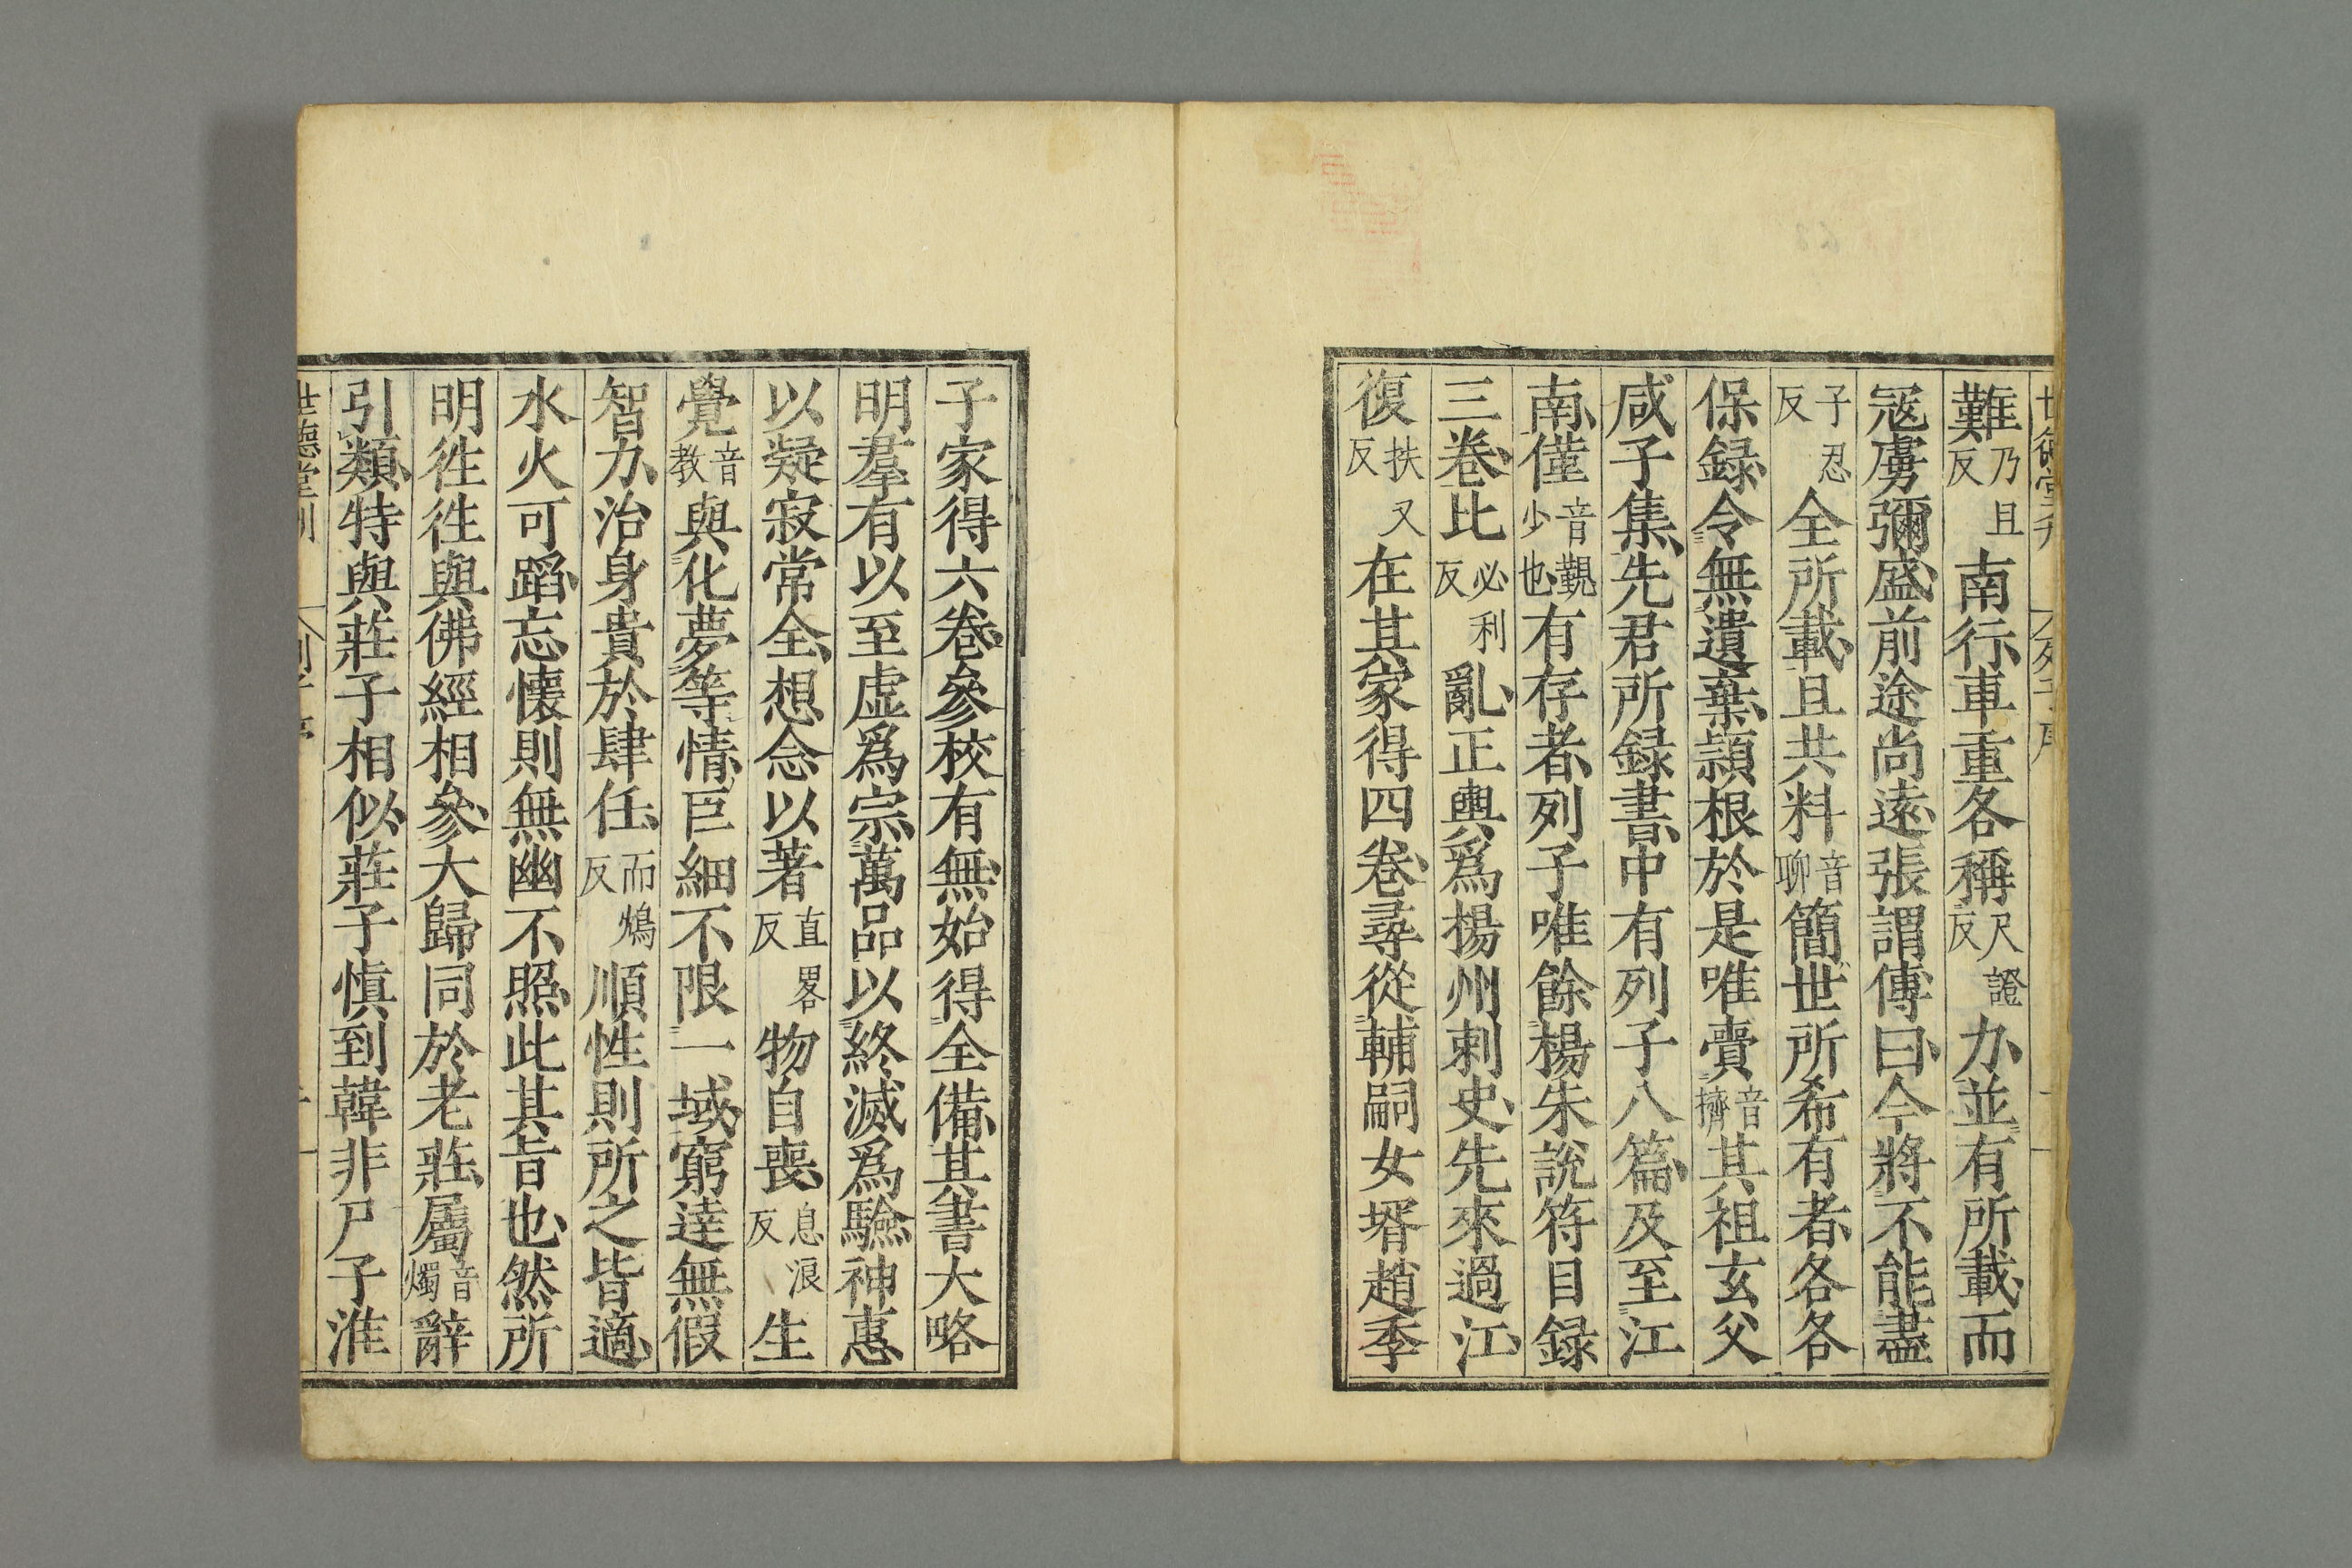 難乃且反南行車重各稱尺證反力並有所載而
冦虜彌盛前途尚遠張謂傅曰今將不能盡
子忍反全所載且共料音聊簡世所希有者各各
保録令無遺棄頴根於是唯賷音擠其祖玄父
咸子集先君所録書中有列子八篇及至江
南僅音覲少也有存者列子唯餘楊朱説符目録
三卷比必利反亂正輿爲揚州刺史先來過江
復扶又反在其家得四卷尋從輔嗣女壻趙季
子家得六卷參校有無始得全備其書大略
明羣有以至虚爲宗萬品以終滅爲驗神惠
以凝寂常全想念以著直畧反物自喪息浪反生
覺音教與化夢等情巨細不限一域窮達無假
智力治身貴於肆任而鴆反順性則所之皆適
水火可蹈忘懷則無幽不照此其旨也然所
明徃徃與佛經相參大歸同於老莊屬音燭辭
引類特與莊子相似莊子慎到韓非尸子淮
世德堂刊